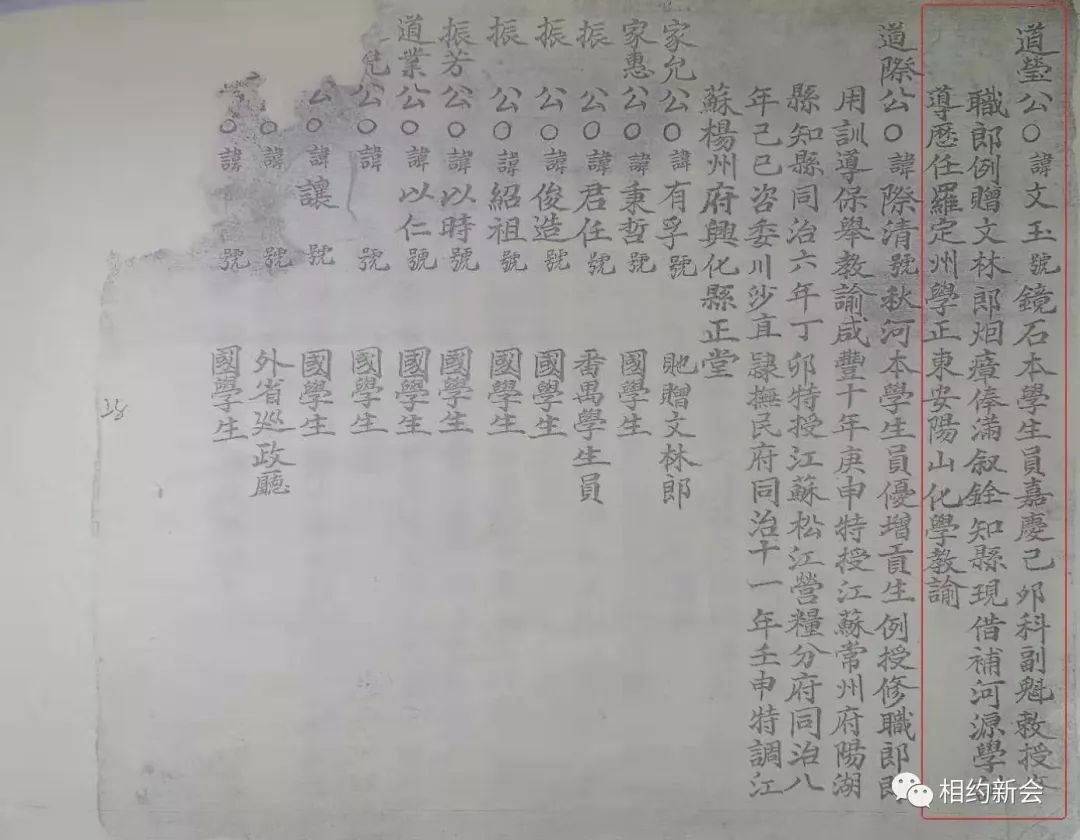 道瑩公○諱文玉號鏡石本學生員嘉慶己卯科副魁敕授
職郎例贈文林郎烟瘴俸滿叙銓知縣現借補河源學
導歷任羅定州學正東安陽山化學教諭
道際公○諱際清號秋河本學生員優增貢生例授修職郎
用訓導保舉教諭咸豐十年庚申特授江蘇常州府陽湖
縣知縣同治六年丁卯特授江蘇松江營糧分府同治八
年己巳咨委川沙直隸撫民府同治十一年壬申特調江
蘇楊州府興化縣正堂
家允公○諱有孚號 貤贈文林郎
家惠公○諱秉哲號 國學生
振公○諱君任號 番禺學生員
振公○諱俊造號 國學生
振公○諱紹祖號 國學生
振芳公○諱以時號 國學生
道業公○諱以仁號 國學生
公○諱 號 國學生
公○諱讓號 國學生
○諱 號 外省巡政廳
○諱 號 國學生
相约新会